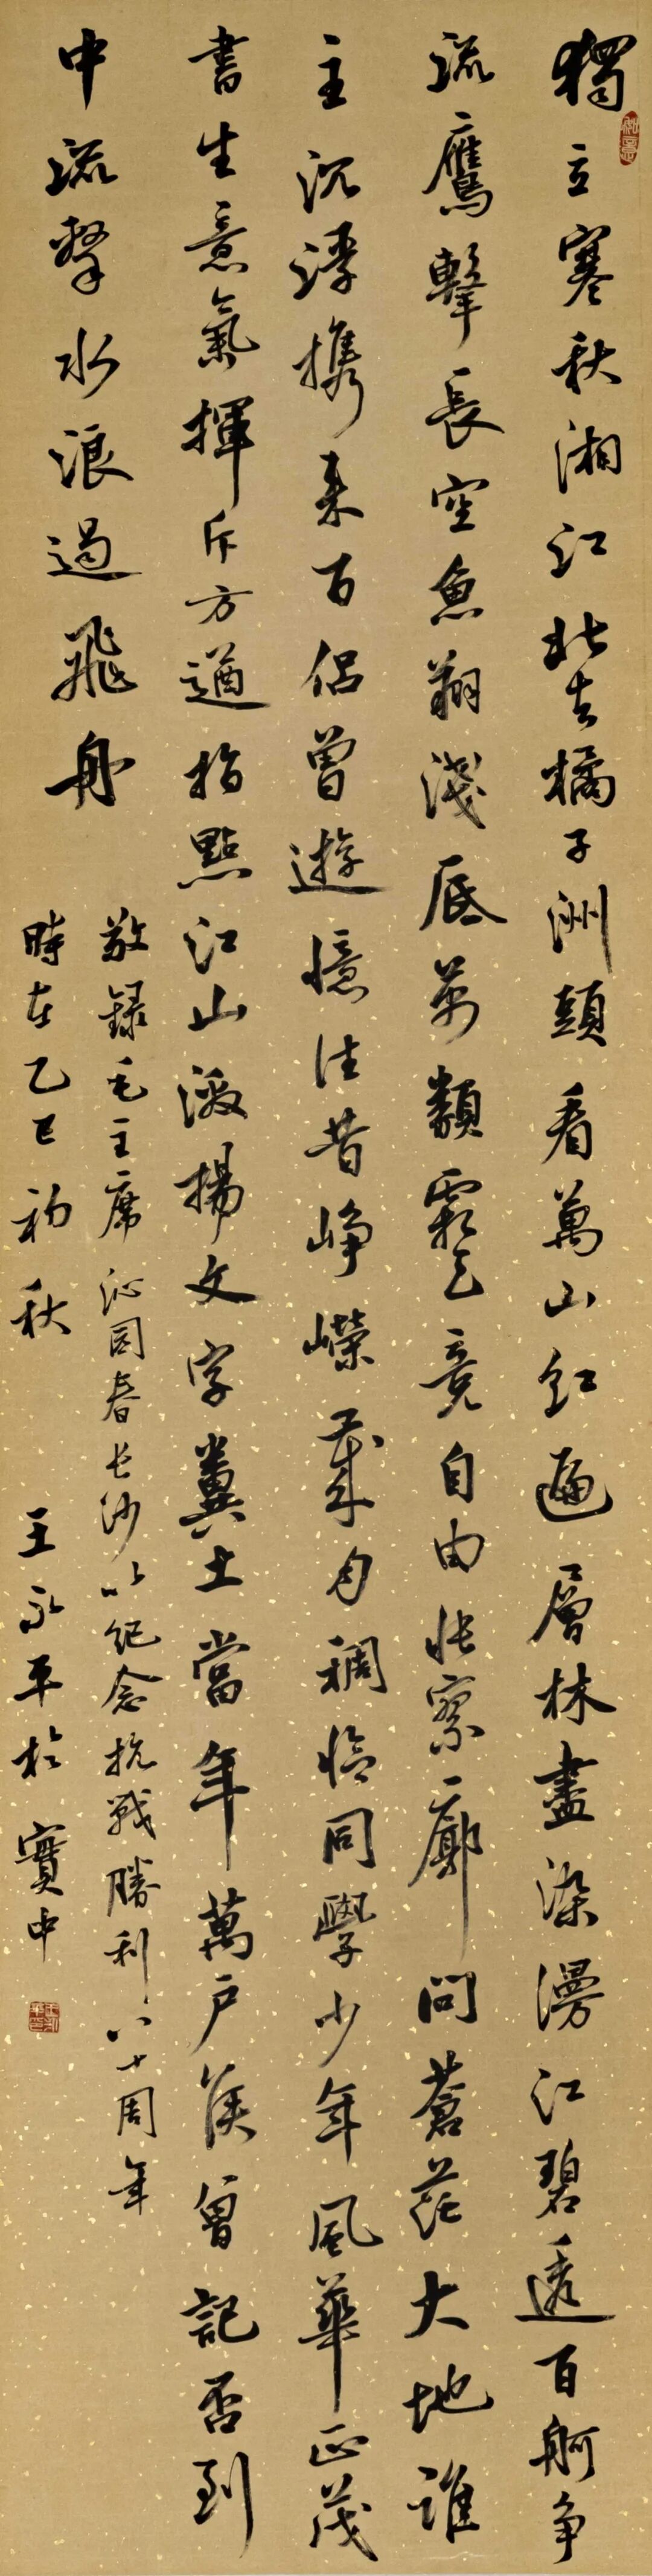 獨立寒秋湘江北去橘子洲頭看萬山紅遍層林盡染漫江碧透百舸争
流鷹擊長空魚翔淺底萬類霜天竞自由悵寥廓問蒼茫大地誰
主沉浮携来百侣曾遊憶往昔崢嶸歲月稠恰同學少年風華正茂
書生意氣揮斥方遒指點江山激揚文字糞土當年萬户侯曾記否到
中流擊水浪遏飛舟
敬録毛主席沁园春长沙以纪念抗战勝利八十周年
時在乙巳初秋 王永平於實中